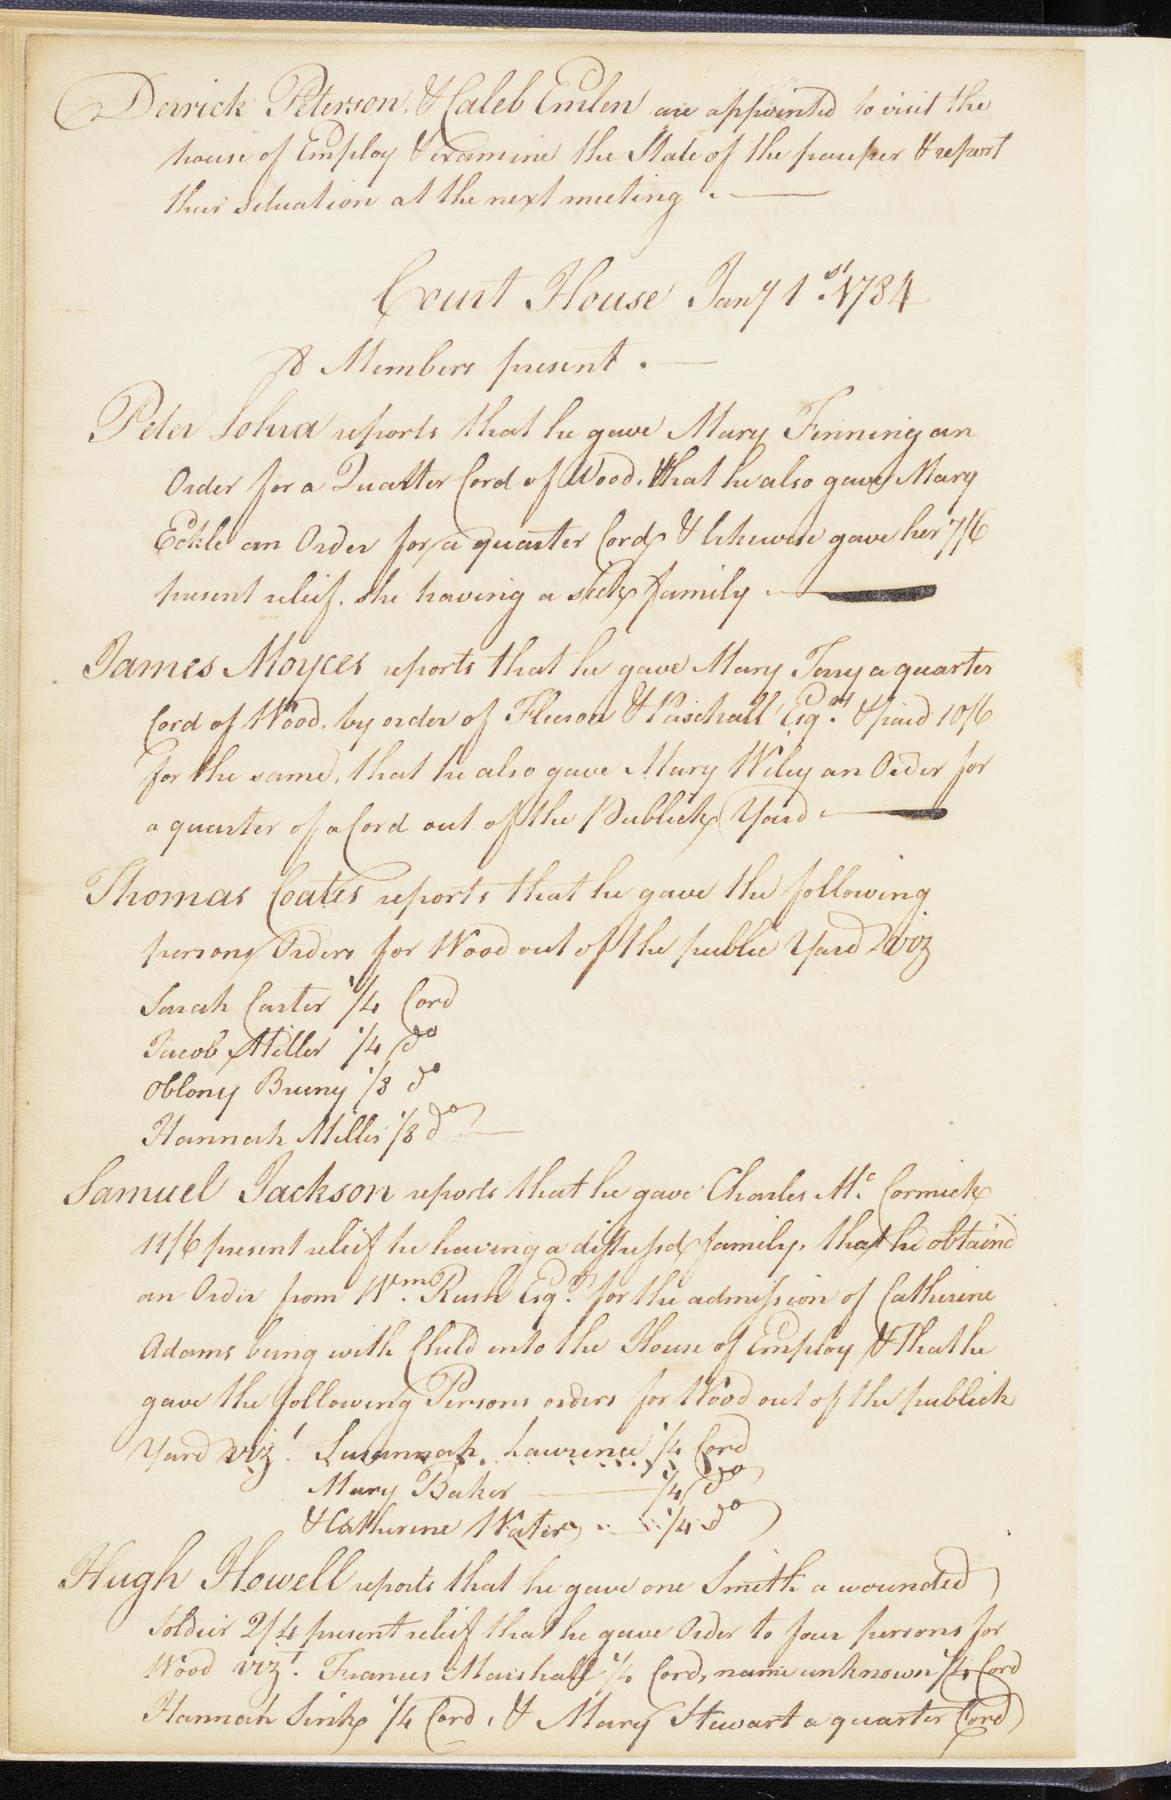 Derrick Peterson, & Caleb Emlen are appointed to visit the
house of Employ & examine the State of the pauper & report
their situation at the next meeting
Court House Jany 1st. 1784
Members present.
Peter reports that he gave Mary Finning an
Order for a Quarter Cord of Wood, that he also gave Mary
Eckle an Order for a quarter Cord, & likewise gave her 7/6
present relief. She having a sick family
James Moyces reports that he gave Mary Terry a quarter
Cord of Wood. by order of Fleeson & Paschall Esqrs. & paid 10/6
for the same, that he also gave Mary Wiley an Order for
a quarter of a Cord out of the Publick Yard
Thomas Coates reports that he gave the following
persons Orders for Wood out of the public Yard Viz
Sarah Carter 1/4 Cord
Jacob Miller 1/4 do
1/8 do
Hannah Miller 1/8 do
Samuel Jackson reports that he gave Charles Mc. Cormick
11/6 present relief he having a distressd family, that he obtaind
an Order from Wm. Rush Esqr. for the admission of Catherine
Adams being with Child into the House of Employ & that he
gave the following Persons orders for Wood out of the publick
Yard Vizt. Susannah Lawrence 1/4 Cord
Mary Baker 1/4 do
& Catherine Waters 1/4 do
Hugh Howell reports that he gave one Smith a wounded
Soldier 2/4 present relief that he gave Order to four persons for
Wood Vizt. Frances Marshall 1/4 Cord, name unknown 1/4 Cord
Hannah Sink 1/4 Cord, & Mary Stewart a quarter Cord